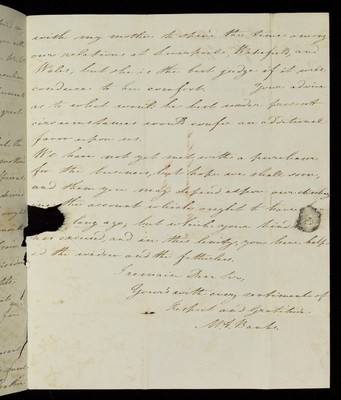 with my mother to share the time among
our relations at Liverpool, Wakefield, and
Wales, but she is the best judge if it will
conduce to her comfort. Your advice
as to what would be best under present
circumstances would confer an additional
favor upon us.
We have not yet met with a purchaser
for the business, but hope we shall soon,
and then you may depend upon our
the account which ought to have
long ago, but which your kind
has excused, and in this lenity, you have help
ed the widow and the fatherless.
I remain Dear Sir,
Yours with every sentiment of
Respect and Gratitude.
Banks